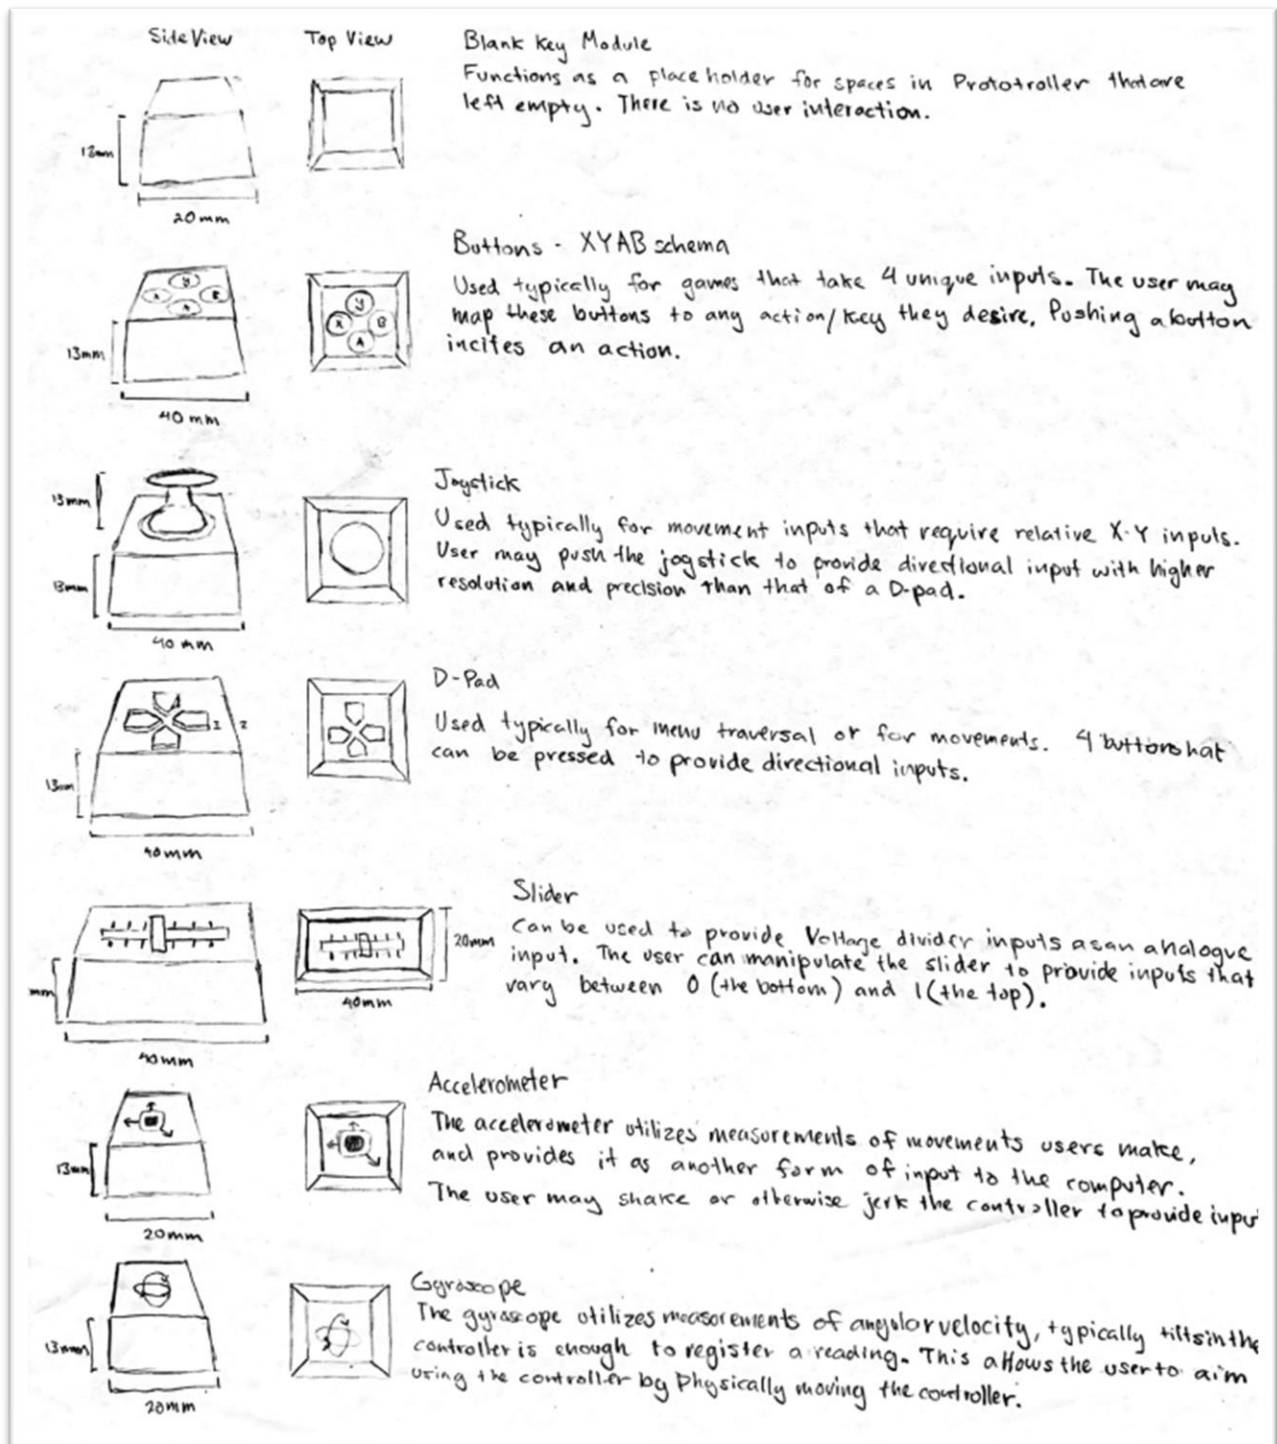 Side View Top View Blank Key Module
Functions as a place holder for spaces in Prototroller that are
left empty. There is no user interaction.
20mm
Buttons - XYAB schema
Used typically for games that take 4 unique inputs. The user may
map these buttons to any action/key they desire. Pushing a button
incites an action.
Y
X B
A
Y
X B
A
13mm
40 mm
Joystick
13mm
Used typically for movement inputs that require relative X-Y inputs.
User may push the joystick to provide directional input with higher
resolution and precision than that of a D-pad.
13mm
40 mm
D-Pad
Used typically for menu traversal or for movements. 4 buttons hat
can be pressed to provide directional inputs.
13mm
40mm
Slider
Can be used to provide Voltage divider inputs as an analogue
20mm
input. The user can manipulate the slider to provide inputs that
vary between 0 (the bottom) and 1 (the top).
mm
40mm
40mm
Accelerometer
The accelerometer utilizes measurements of movements users make,
and provides it as another form of input to the computer.
13mm
The user may shake or otherwise jerk the controller to provide inpu
20mm
Gyroscope
The gyroscope utilizes measurements of angular velocity, typically tilts in the
controller is enough to register a reading. This allows the user to aim
13mm
using the controller by Physically moving the controller.
20mm